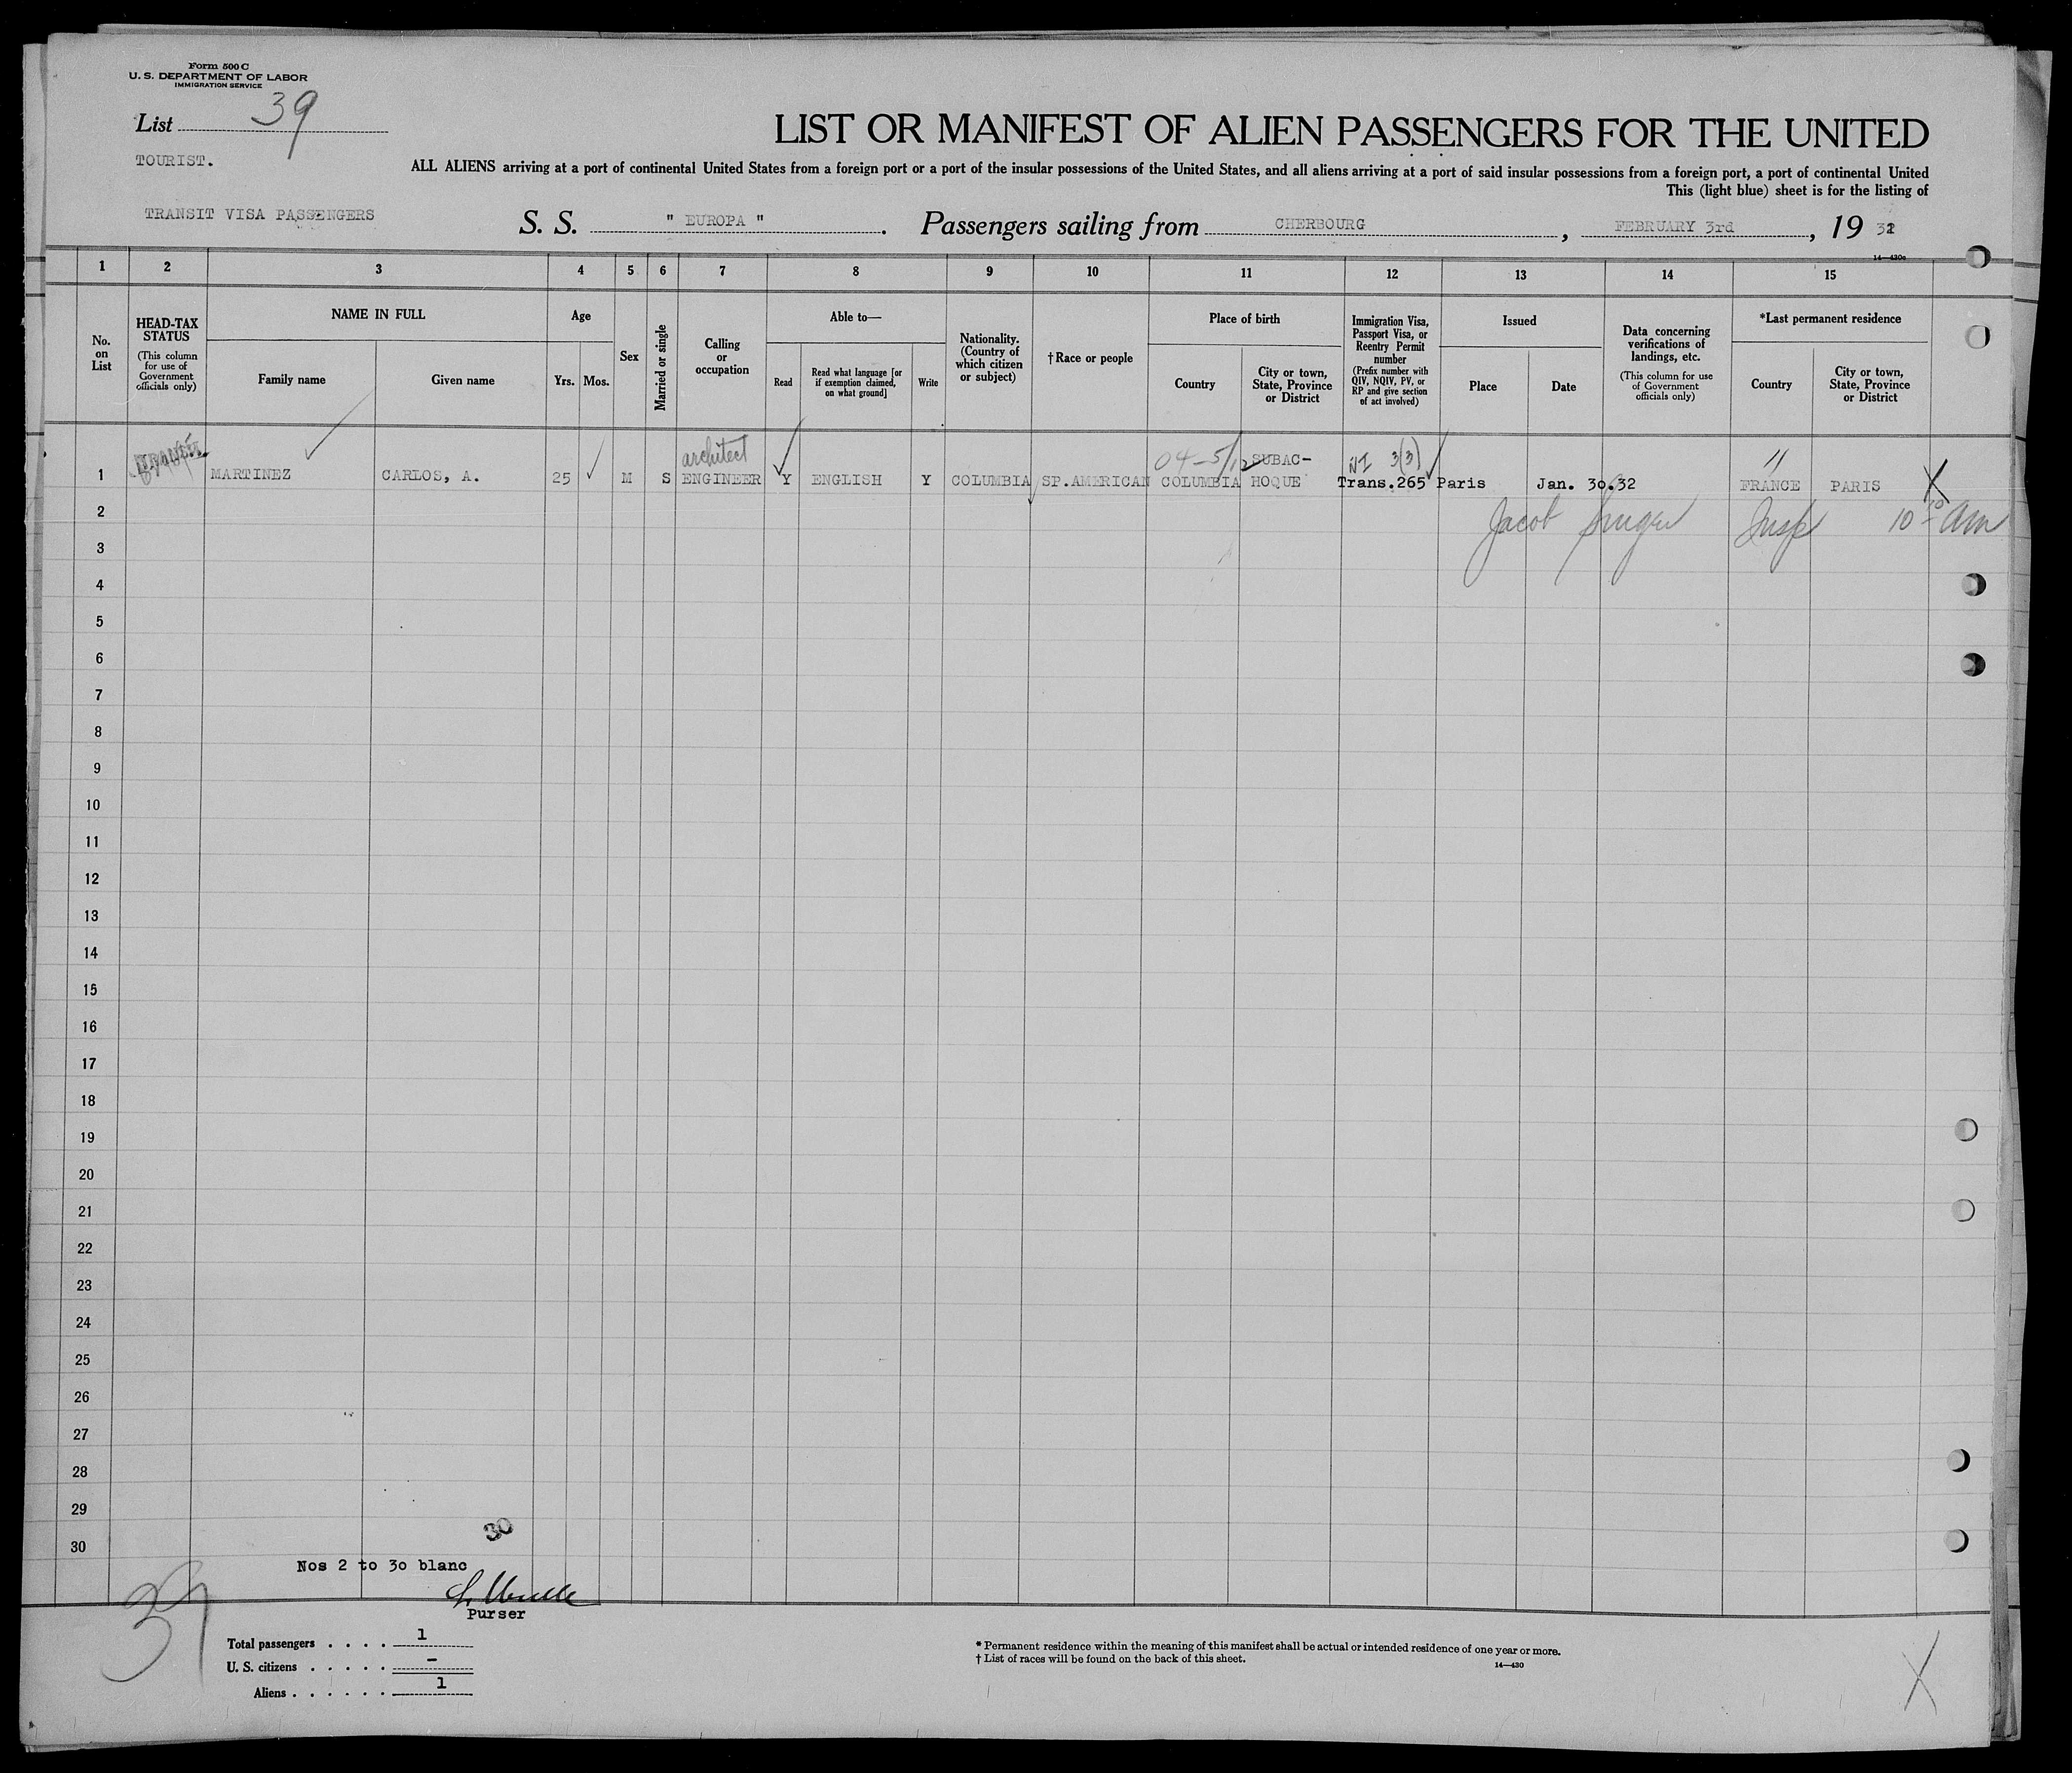 Form 500 C
U. S. DEPARTMENT OF LABOR
IMMIGRATION SERVICE
List 39
TOURIST.
LIST OR MANIFEST OF ALIEN PASSENGERS FOR THE UNITED
ALL ALIENS arriving at a port of continental United States from a foreign port or a port of the insular possessions of the United States, and all aliens arriving at a port of said insular possessions from a foreign port, a port of continental United
This (light blue) sheet is for the listing of
TRANSIT VISA PASSENGERS
S. S. " EUROPA ". Passengers sailing from CHERBOURG, FEBRUARY 3rd, 19 32
14—430a
1 2 3 4 5 6 7 8 9 10 11 12 13 14 15
No. on List
HEAD-TAX STATUS
(This column for use of Government officials only)
NAME IN FULL
Family name
Given name
Age
Yrs. Mos.
Sex
Married or single
Calling or occupation
Able to—
Read
Read what language [or if exemption claimed, on what ground]
Write
Nationality. (Country of which citizen or subject)
†Race or people
Place of birth
Country
City or town, State, Province or District
Immigration Visa, Passport Visa, or Reentry Permit number
(Prefix number with QIV, NQIV, PV, or RP and give section of act involved)
Issued
Place
Date
Data concerning verifications of landings, etc.
(This column for use of Government officials only)
*Last permanent residence
Country
City or town, State, Province or District
architect 04-5/12 SUBAC- 3(3) "
1 MARTINEZ CARLOS, A. 25 M S ENGINEER Y ENGLISH Y COLUMBIA SP.AMERICAN COLUMBIA HOQUE Trans.265 Paris Jan. 30.32 FRANCE PARIS X
2 Jacob Insp 10 10 am
3
4
5
6
7
8
9
10
11
12
13
14
15
16
17
18
19
20
21
22
23
24
25
26
27
28
29
30
30
Nos 2 to 30 blanc
Purser
39
Total passengers . . . . 1
U. S. citizens . . . . . -
Aliens . . . . . . 1
* Permanent residence within the meaning of this manifest shall be actual or intended residence of one year or more.
† List of races will be found on the back of this sheet.
14—430
X